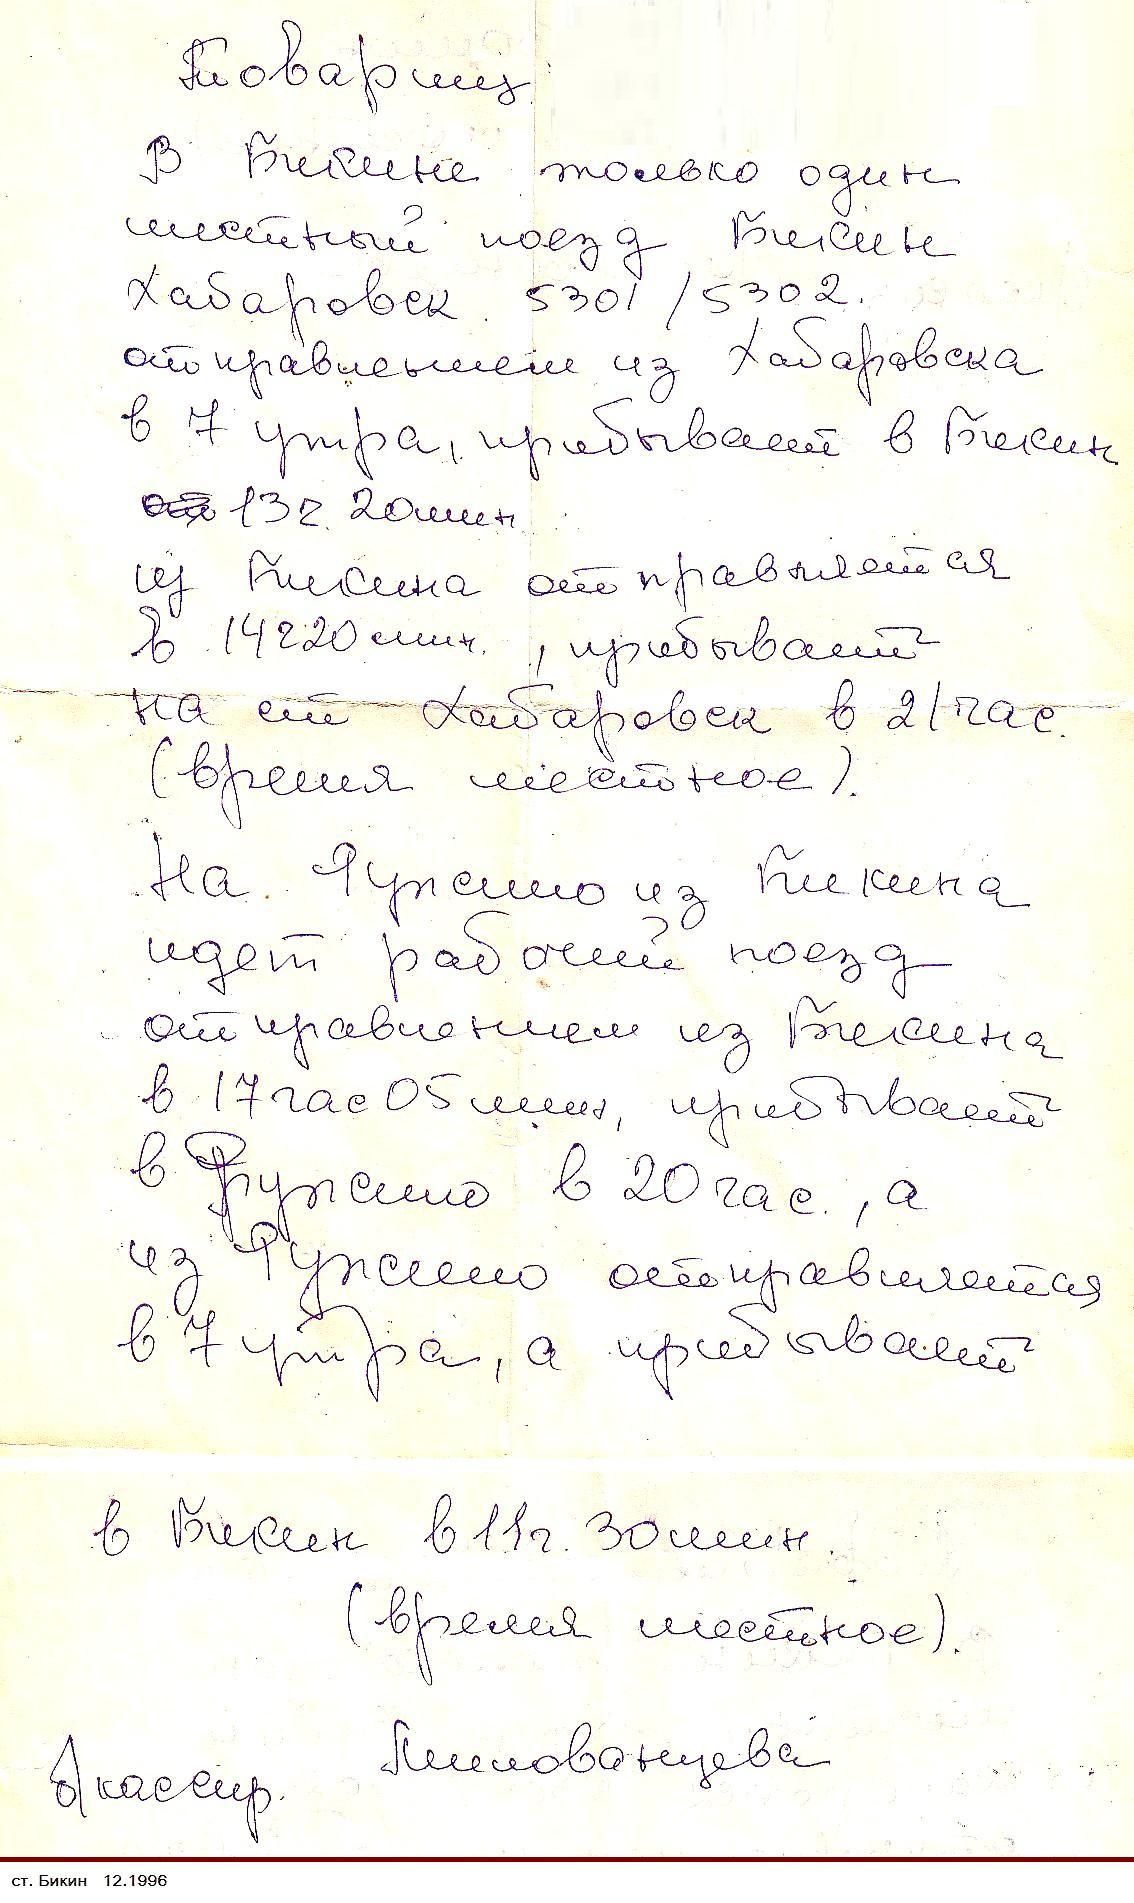 Товарищ
В Бикине только один
местный поезд Бикин
Хабаровск 5301/5302.
отправлением из Хабаровска
в 7 утра, прибывает в Бикин
13г. 20мин
из Бикина отправляется
в 14г20мин., прибывает
на ст Хабаровск в 21час.
(время местное).
На Ружино из Бикина
идет рабочий поезд
отправлением из Бикина
в 17час05мин, прибывает
в Ружино в 20час., а
из Ружино отправляется
в 7 утра, а прибывает
в Бикин в 11ч. 30мин.
(время местное).
б/кассир.
ст. Бикин 12.1996